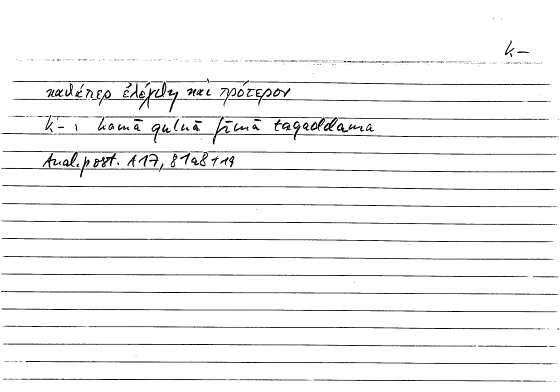 k–
καθάπερ ἐλέχθη καὶ πρότερον
k– : kamā qulnā fīmā taqaddama
Anal. post. A 17, 81a8+19